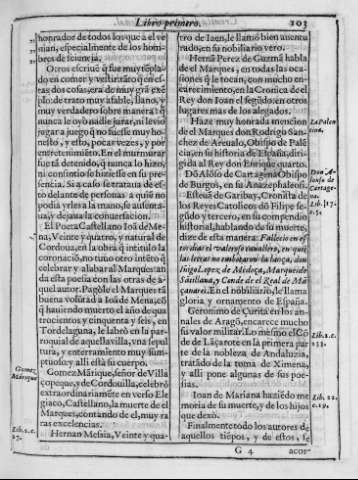 Libro primero. 103
honrador de todos los que a el ve
nian, especialmente de los hom
bres de sciencia,
Otros escriuẽ q̃ fue muy tẽpla
do en comer y vestir: raro q̃ de es-
tas dos cosas, era de muy grã exẽ
plo: de trato muy afable, llano, y
muy verdadero sobre manera: q̃
nunca le oyò nadie jurar, ni leuiò
jugar a juego q̃ no fuesse muy ho-
nesto, y esto, pocas vezes, y por
entretenimiẽto. En el murmurar
fue tã detenido, q̃ nunca lo hizo,
ni consintio se hiziesse en su pre-
sencia. Si a caso se trataua de es-
to delante de personas a quiẽ no
podia yrles a la mano, se ausenta-
ua, y dejaua la conuersacion.
El Poeta Castellano Ioã de Me-
na, Veinte y quatro, y natural de
Cordoua, en la obra q̃ intitulò la
coronaciõ, no tuuo otro intẽto q̃
celebrar y alabar al Marques: an
da esta poesia con las otras de a-
quel autor. Pagòle el Marques la
buena volũtad a Ioã de Mena, cõ
q̃ hauiendo muerto el año de qua
trocientos y cinquenta y seis, en
Tordelaguna, le labrò en la par-
roquial de aquella villa, vna sepul
tura, y enterramiento muy sum-
ptuoso y alli està su cuerpo.
Gomez Mãrique, señor de Villa
çopeque, y de Cordouilla, celebrò
extraordinariamẽte en verso Ele
giaco, Castellano, la muerte de el
Marques, contando de el, muy ra
ras excelencias.
Hernan Mesia, Veinte y qua-
Gomez
Mãrique
Lib. 2. c.
17.
tro de Iaen, le llamò bien auentu
rado, en su nobiliario vero.
Hernã Perez de Guzmã habla
de el Marques, en todas las oca-
siones q̃ le tocan, con mucho en-
carecimiento, en la Cronica de el
Rey don Ioan el segũdo: en otros
lugares mas de los alegados.
Haze muy honrada mencion
de el Marques don Rodrigo San-
chez de Areualo, Obispo de Palẽ
cia, en su historia de España: diri-
gida al Rey don Enrique quarto.
Dõ Alõso de Cartagena Obispo
de Burgos, en su Anazephaleosi.
Esteuã de Garibay, Cronista de
los Reyes Catolicos dõ Filipe se-
gũdo y tercero, en su compendio
historial, hablando de su muerte,
dize de esta manera: Fallecio en es
tos dias el valeroso cauallero, en quiẽ
las letras no embotaron la lança, don
Iñigo Lopez de Mẽdoça, Marques de
Sãtillana, y Conde de el Real de Mã
çanares. En el nobiliario, le llama
gloria y ornamento de España.
Geronimo de Çurita en los an-
nales de Aragõ, encarece mucho
su valor militar. Lo mesmo el Cõ
de de Lãçarote en la primera par
te de la nobleza de Andaluzia,
tratãdo de la toma de Ximena,
y alli pone algunas de sus poe-
sias.
Ioan de Mariana haziẽdo me
moria de su muerte, y de los hijos
que dexò.
Finalmente todo los autores de
aquellos tiẽpos, y de estos, se
La Palen
tina.
Don Al-
onso de
Cartage-
na.
Lib. 17.
c. 5.
Lib. 2. c.
132.
Lib. 22.
c. 19.
G 4 acor-